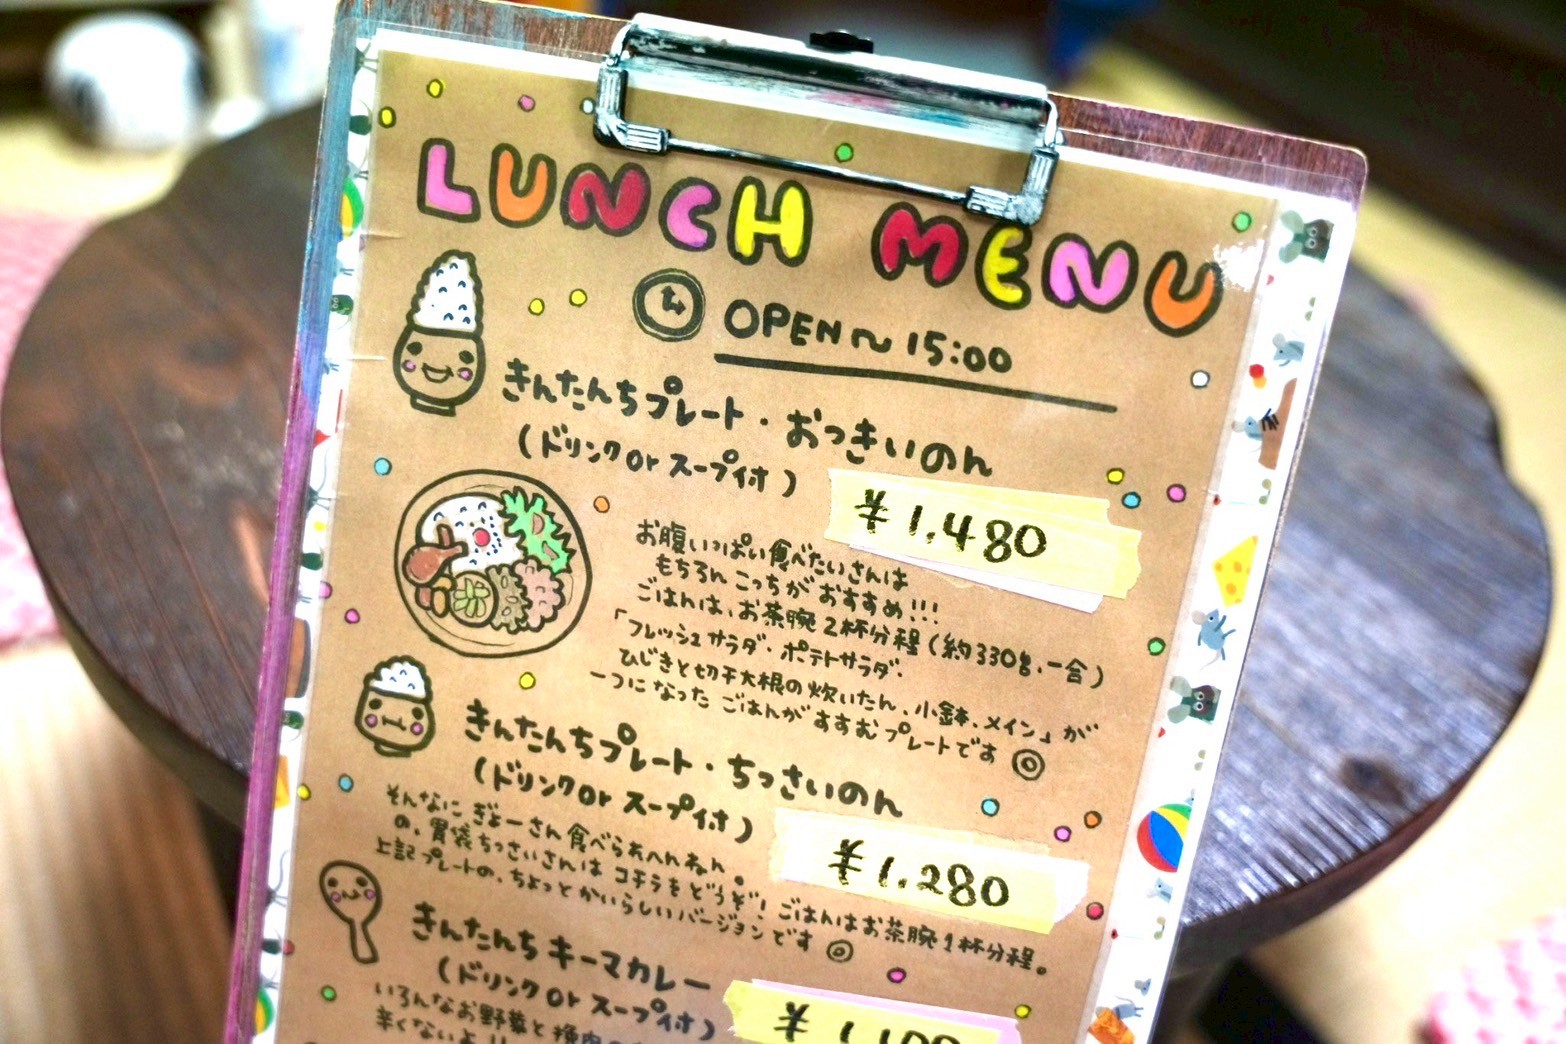 LUNCH MENU
OPEN〜15:00
きんたんちプレート・おっきいのん
(ドリンク or スープ付)
¥1.480
お腹いっぱい食べたいさんは
もちろん こっちが おすすめ!!!
ごはんは、お茶腕2杯分程(約330g.一合)
「フレッシュサラダ・ポテトサラダ・
ひじきと切干大根の炊いたん、小鉢、メイン」が
一つになった ごはんが すすむ プレートです◎
きんたんちプレート・ちっさいのん
(ドリンク or スープ付)
¥1.280
そんなに ぎょーさん 食べられへんねん。
の、胃袋ちっさいさんは コチラをどうぞ! ごはんはお茶腕1杯分程。
上記プレートの、ちょっとかいらしいバージョンです◎
きんたんちキーマカレー
(ドリンク or スープ付)
いろんなお野菜と挽肉
辛くないよ!!